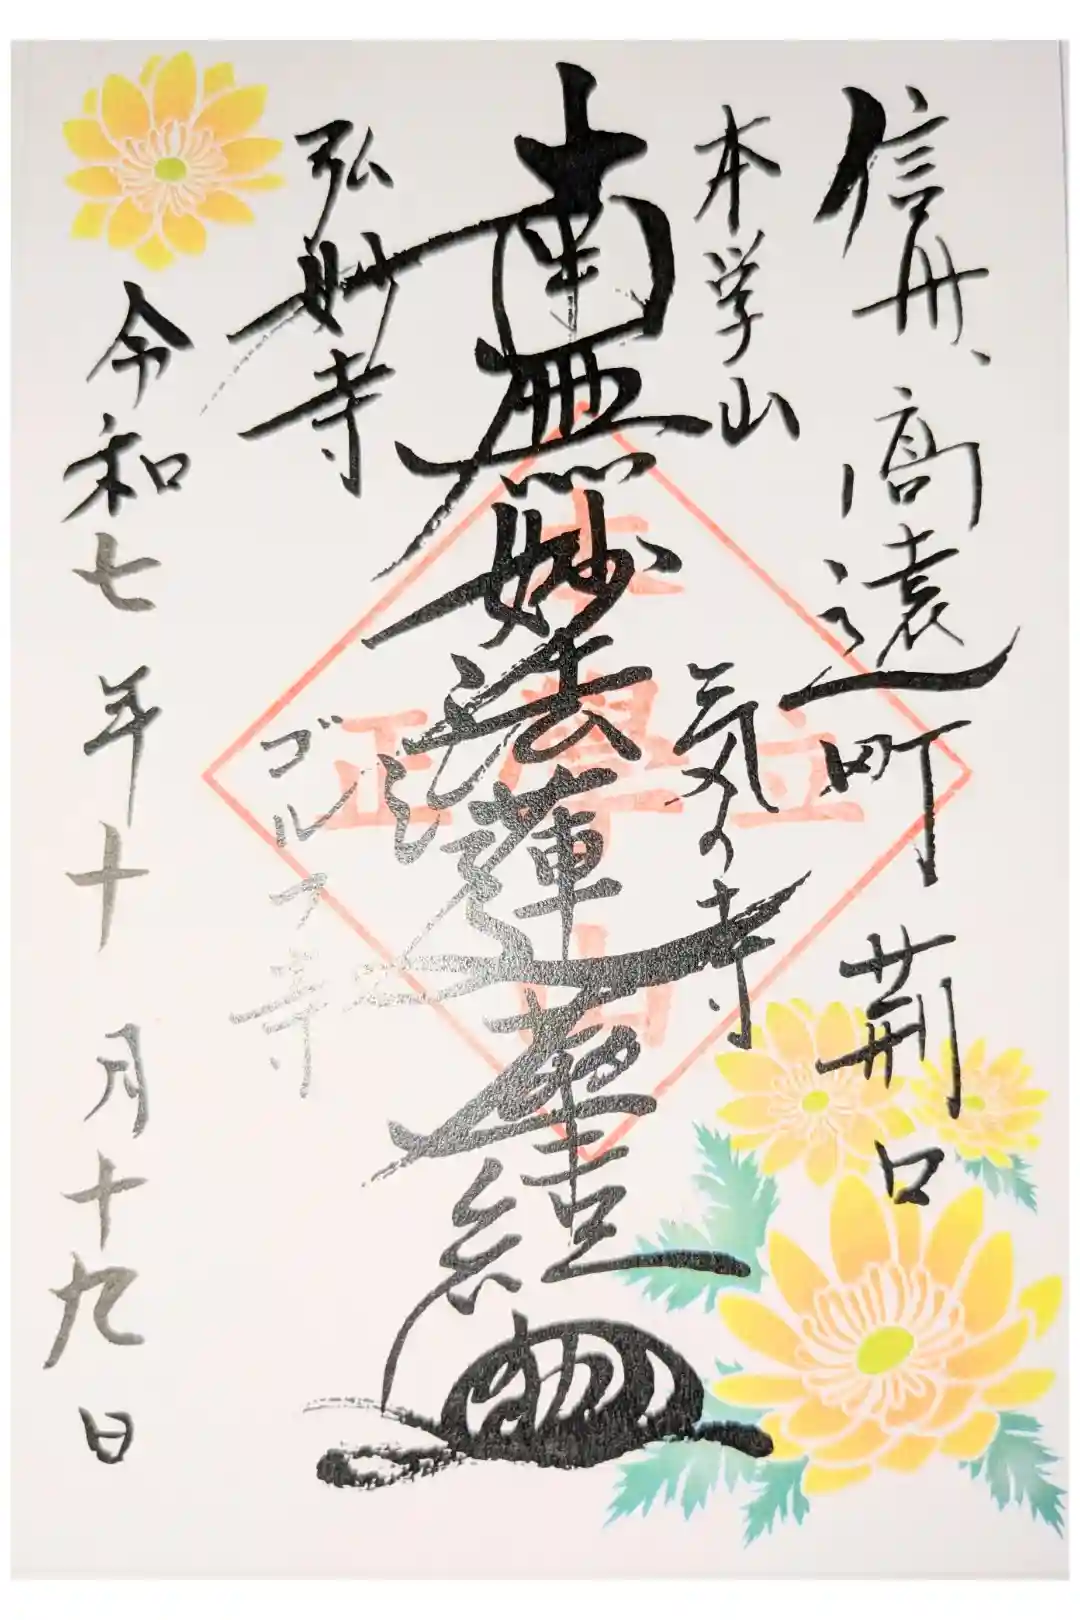 信州、高遠町 荊口
本学山
元気の寺
南無妙法蓮華経
弘妙寺
ゴルフ寺
令和七年十月十九日
本學山
立正